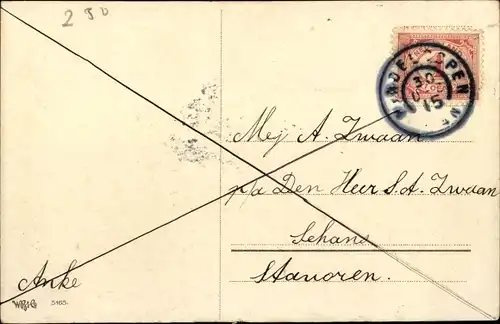 250
HINDELOOPEN
30
15
Mej A. Zwaan
p/a Den Heer S. A. Zwaan
Schans
Stavoren.
Anke
W.B.&G. 5165.